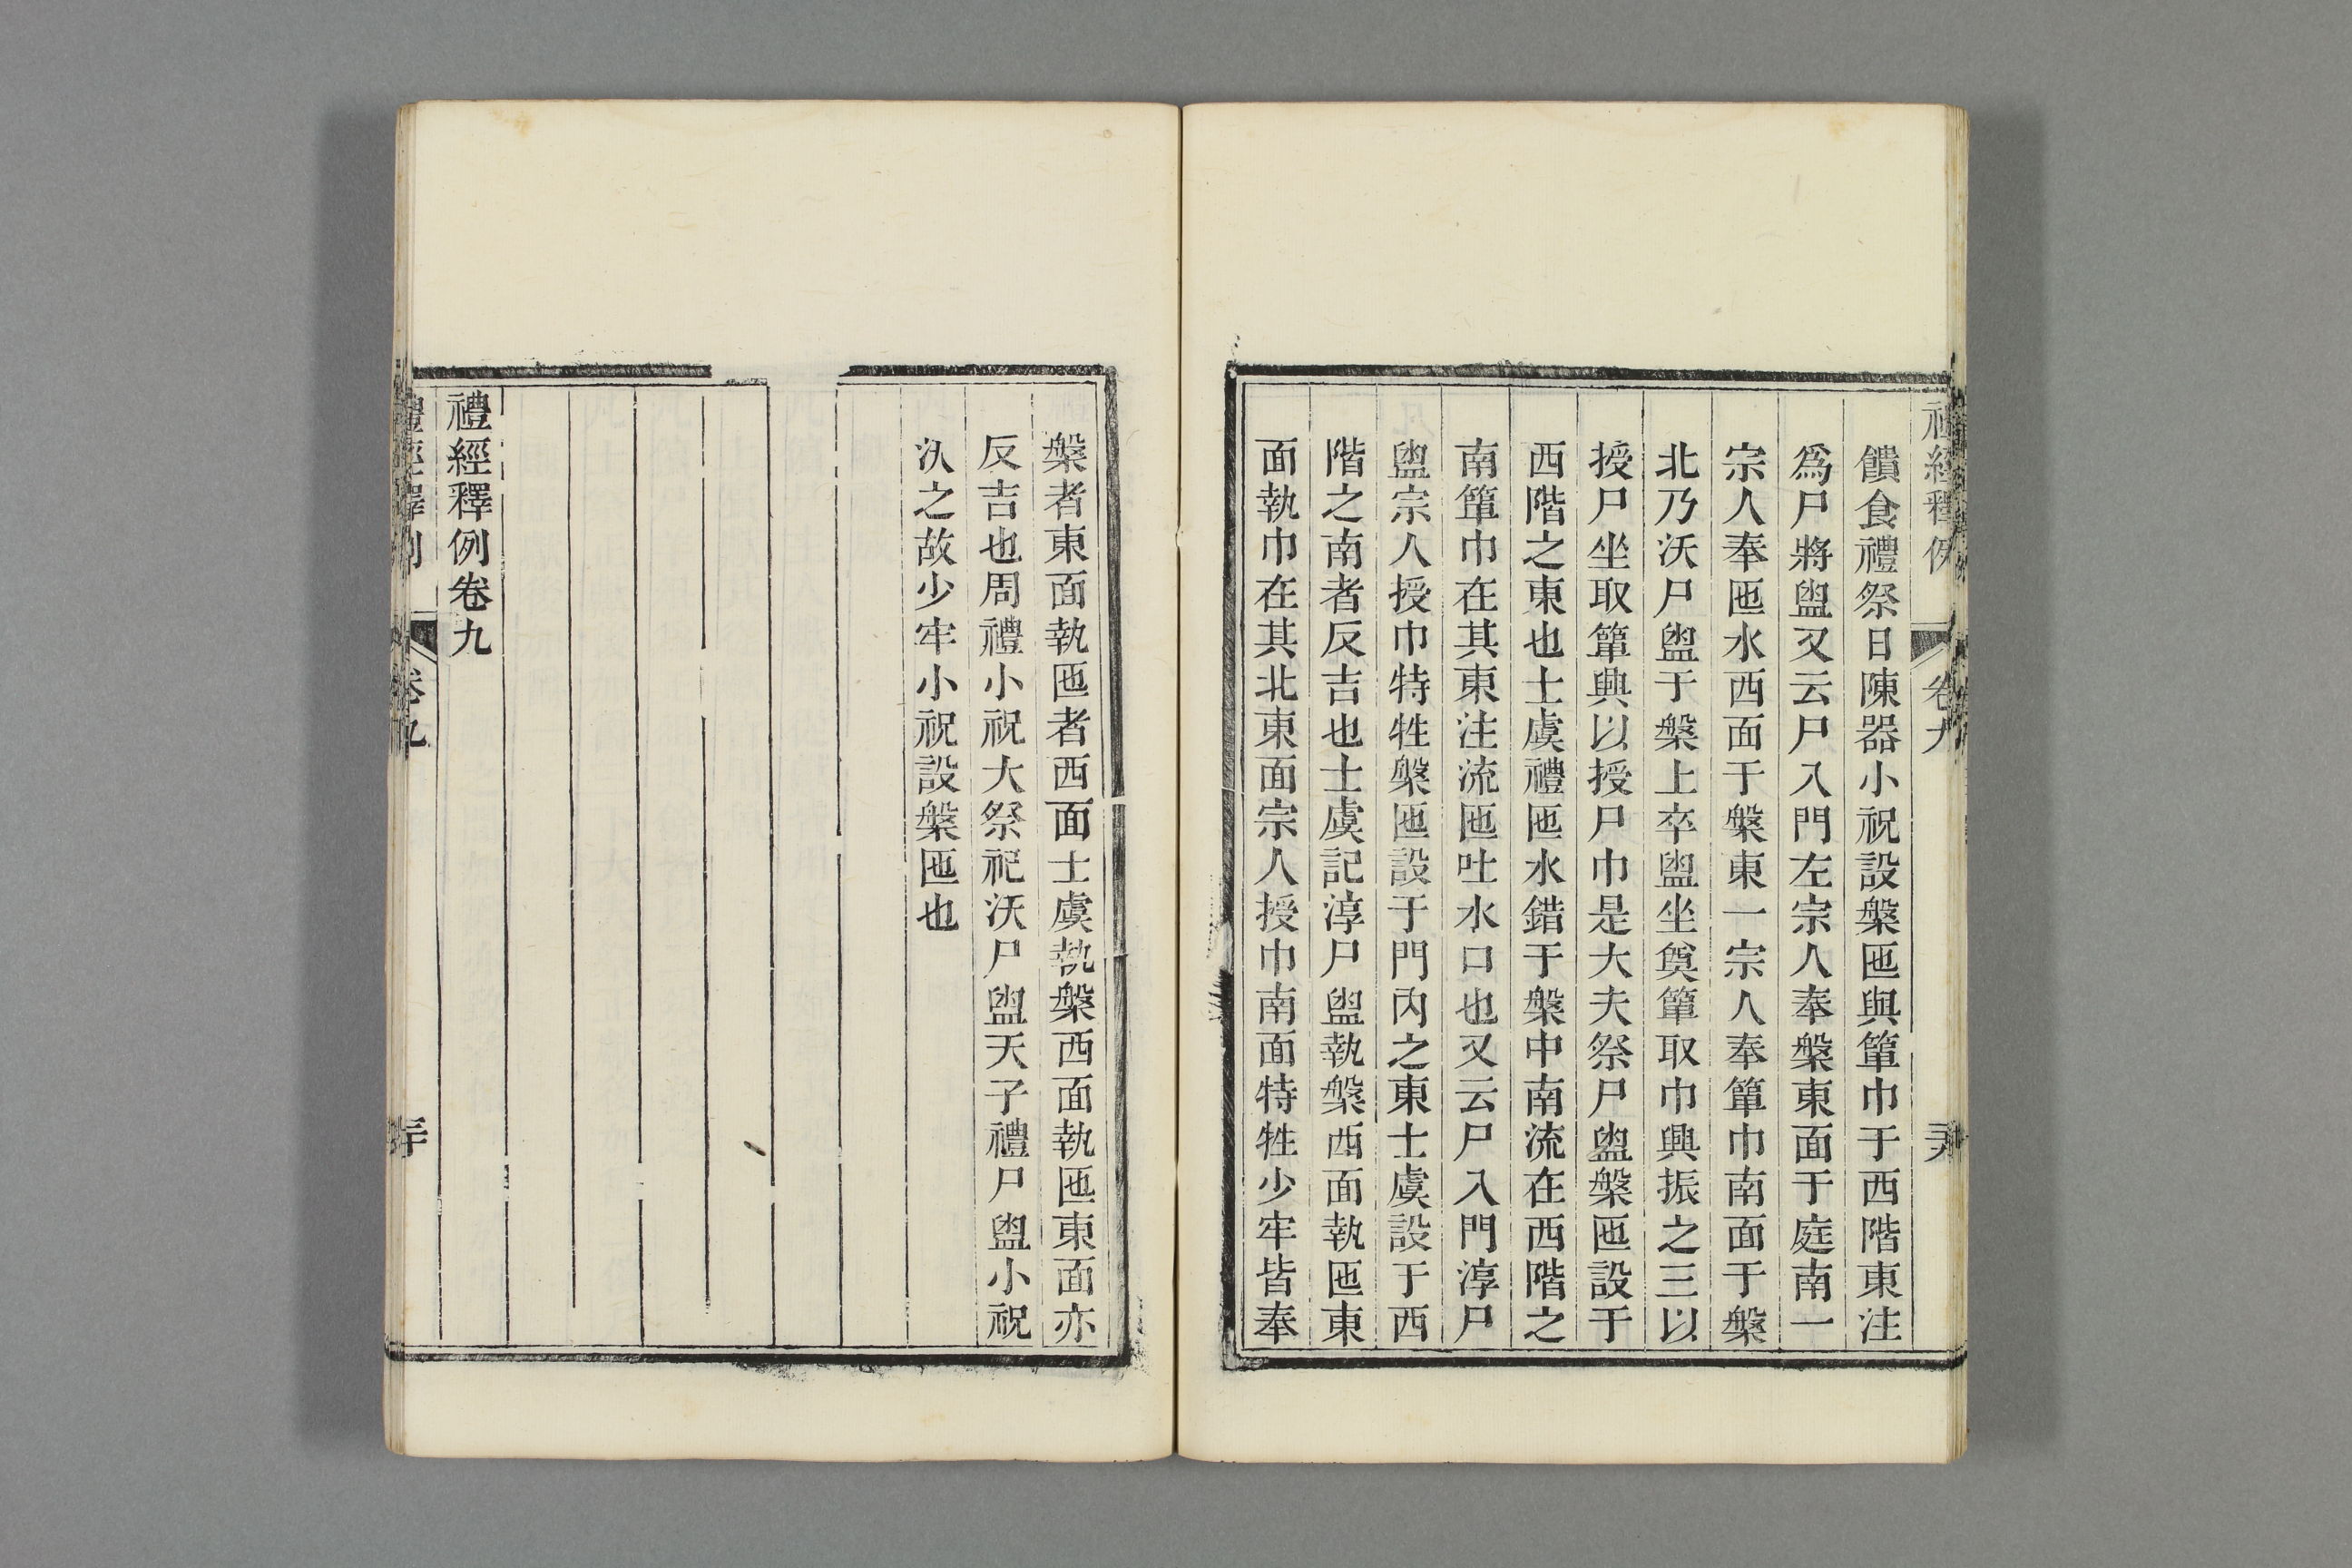 饋食禮祭日陳器小祝設槃匜與簞巾于西階東注
爲尸將盥又云尸入門左宗人奉槃東面于庭南一
宗人奉匜水西面于槃東一宗人奉簞巾南面于槃
北乃沃尸盥于槃上卒盥坐奠簞取巾興振之三以
授尸坐取簞興以授尸巾是大夫祭尸盥槃匜設于
西階之東也士虞禮匜水錯于槃中南流在西階之
南簞巾在其東注流匜吐水口也又云尸入門淳尸
盥宗人授巾特牲槃匜設于門內之東士虞設于西
階之南者反吉也士虞記淳尸盥執槃西面執匜東
面執巾在其北東面宗人授巾南面特牲少牢皆奉
槃者東面執匜者西面士虞執槃西面執匜東面亦
反吉也周禮小祝大祭祀沃尸盥天子禮尸盥小祝
沃之故少牢小祝設槃匜也
禮經釋例卷九
禮經釋例
卷九